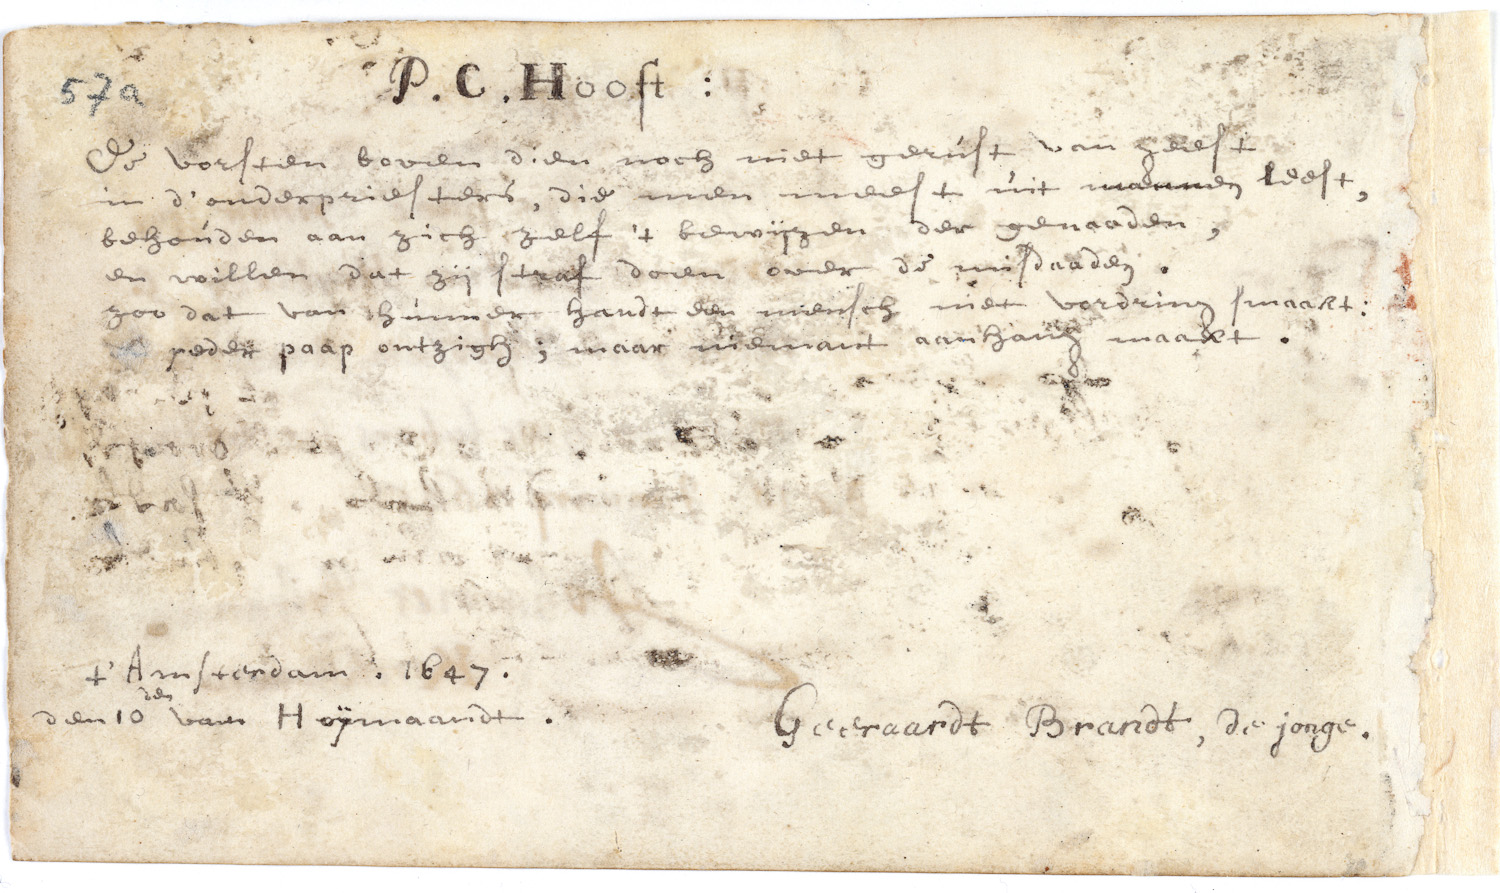 57a
P. C. Hooft :
De vorsten boven dien noch niet gerúst van geest
in d'onderpriesters, die men meest úit mannen leest,
behoúden aan zich zelf 't bewijzen der genaaden,
en willen dat zij straf doen over de misdaaden.
zoo dat van húnner handt een mensch niet vordring smaakt:
yeder paap ontzigh; maar niemant aanhang maakt.
t' Amsterdam. 1647.
den 10den van Hoÿmaandt.
Geeraardt Brandt, de jonge.